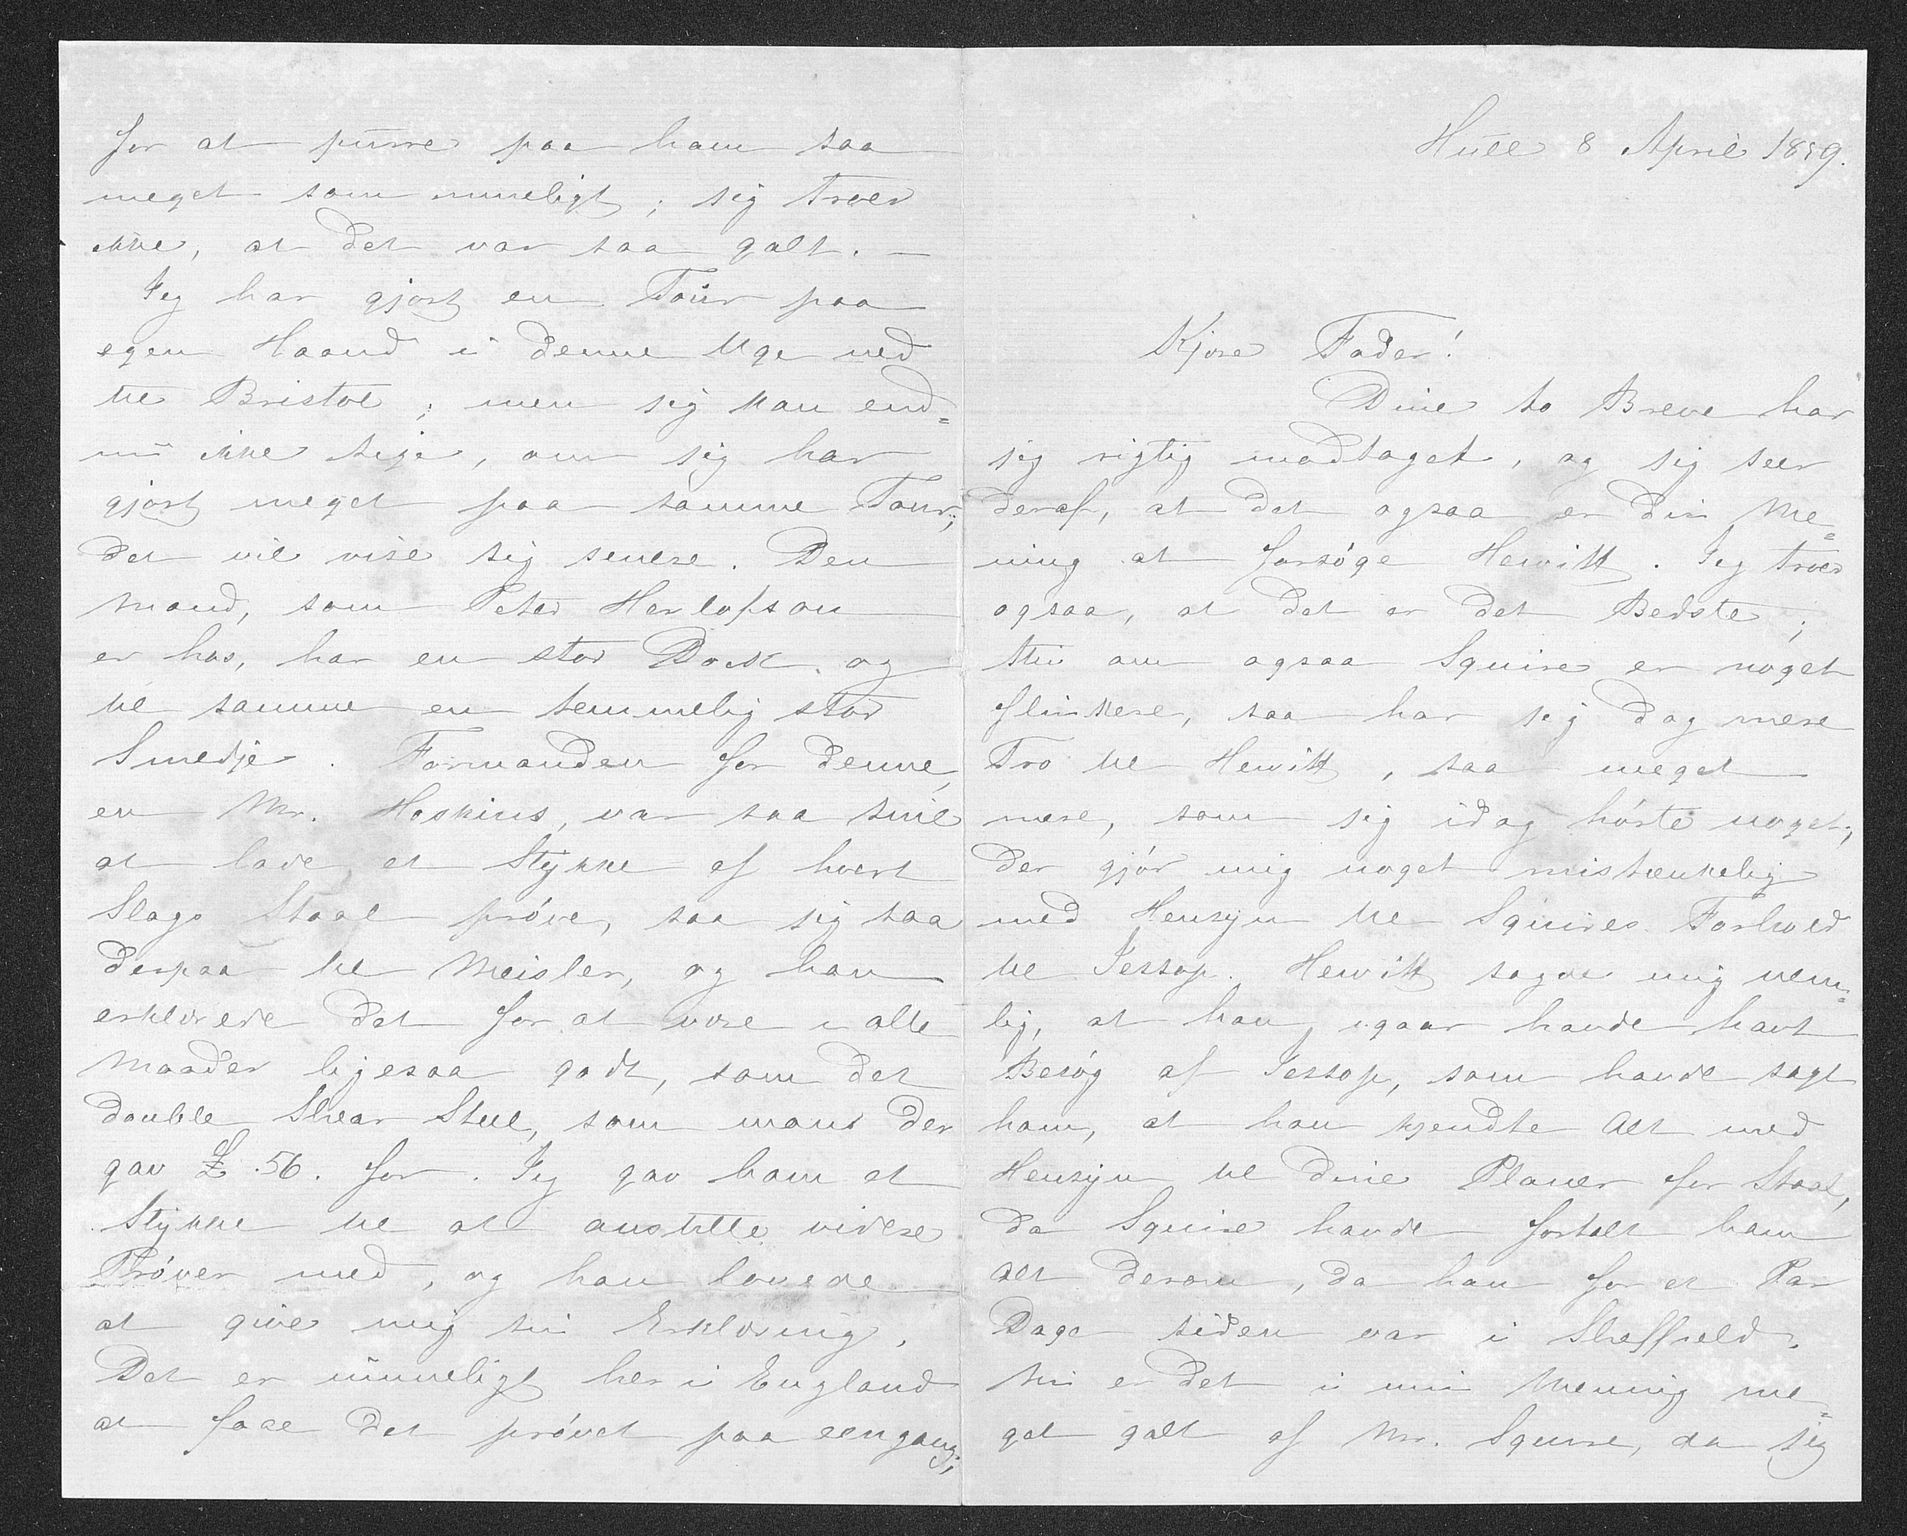 for at purre paa ham saa
meget som mueligt; jeg troer
ikke, at det var saa galt. —
Jeg har gjort en Tour paa
egen Haand i denne Uge ned
til Bristol; men jeg kan end=
nu ikke sige, om jeg har
gjort meget paa samme Tour;
det vil vise sig senere. Den
Mand, som Peter Herlofson
er hos, har en stor Dock og
til samme en temmelig stor
Smedje. Formanden for denne,
en Mr. Hoskins, var saa snil
at lave et Stykke af hvert
Slags Staal prøve, saa jeg saa
derpaa til Meisler, og han
erklærede det for at være i alle
Maader ligesaa godt, som det
double Shear Steel, som mans der
gav £ .56. for. Jeg gav ham et
Stykke til at anstille videre
Prøver med, og han lovede
at give mig sin Erklæring.
Det er umueligt her i England
at faae det prøvet paa eengang;
Hull 8 April 1859.
Kjære Fader!
Dine to Breve har
jeg rigtig modtaget, og jeg seer
deraf, at det ogsaa er din Me=
ning at forsøge Hewitt. Jeg troer
ogsaa, at det er det Bedste;
thi om ogsaa Squire er noget
flinkere, saa har jeg dog mere
Tro til Hewitt, saa meget
mere, som jeg idag hørte noget,
der gjør mig noget mistænkelig
med Hensyn til Squires Forhold
til Jessop. Hewitt sagde mig nem=
lig, at han igaar havde havt
Besøg af Jessop, som havde sagt
ham, at han kjendte Alt med
Hensyn til dine Planer for Staal,
da Squire havde fortalt ham
Alt derom, da han for et Par
Dage siden var i Sheffield.
Nu er det i min Mening me=
get galt af Mr. Squire, da jeg